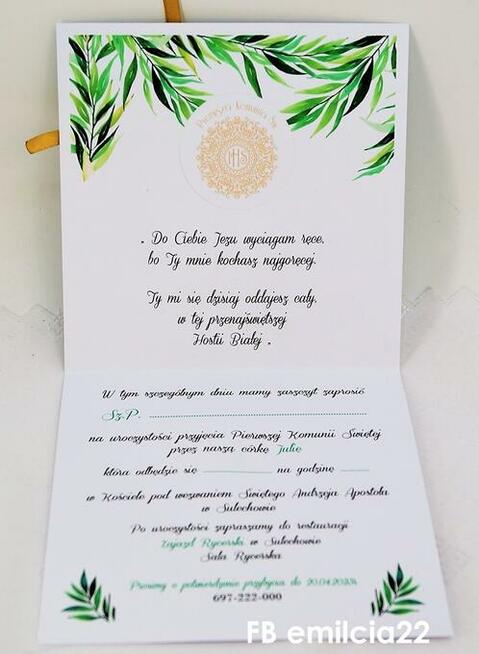 Pierwsza Komunia Św.
IHS
„ Do Ciebie Jezu wyciągam ręce,
bo Ty mnie kochasz najgoręcej.
Ty mi się dzisiaj oddajesz cały,
w tej przenajświętszej
Hostii Białej „
W tym szczególnym dniu mamy zaszczyt zaprosić
Sz.P. ........................................................
na uroczystości przyjęcia Pierwszej Komunii Świętej
przez naszą córkę Julię
która odbędzie się ______________ na godzinę ______
w Kościele pod wezwaniem Świętego Andrzeja Apostoła
w Sulechowie
Po uroczystości zapraszamy do restauracji
Zajazd Rycerski w Sulechowie
Sala Rycerska
Prosimy o potwierdzenie przybycia do 20.04.
697-222-000
FB emilcia22